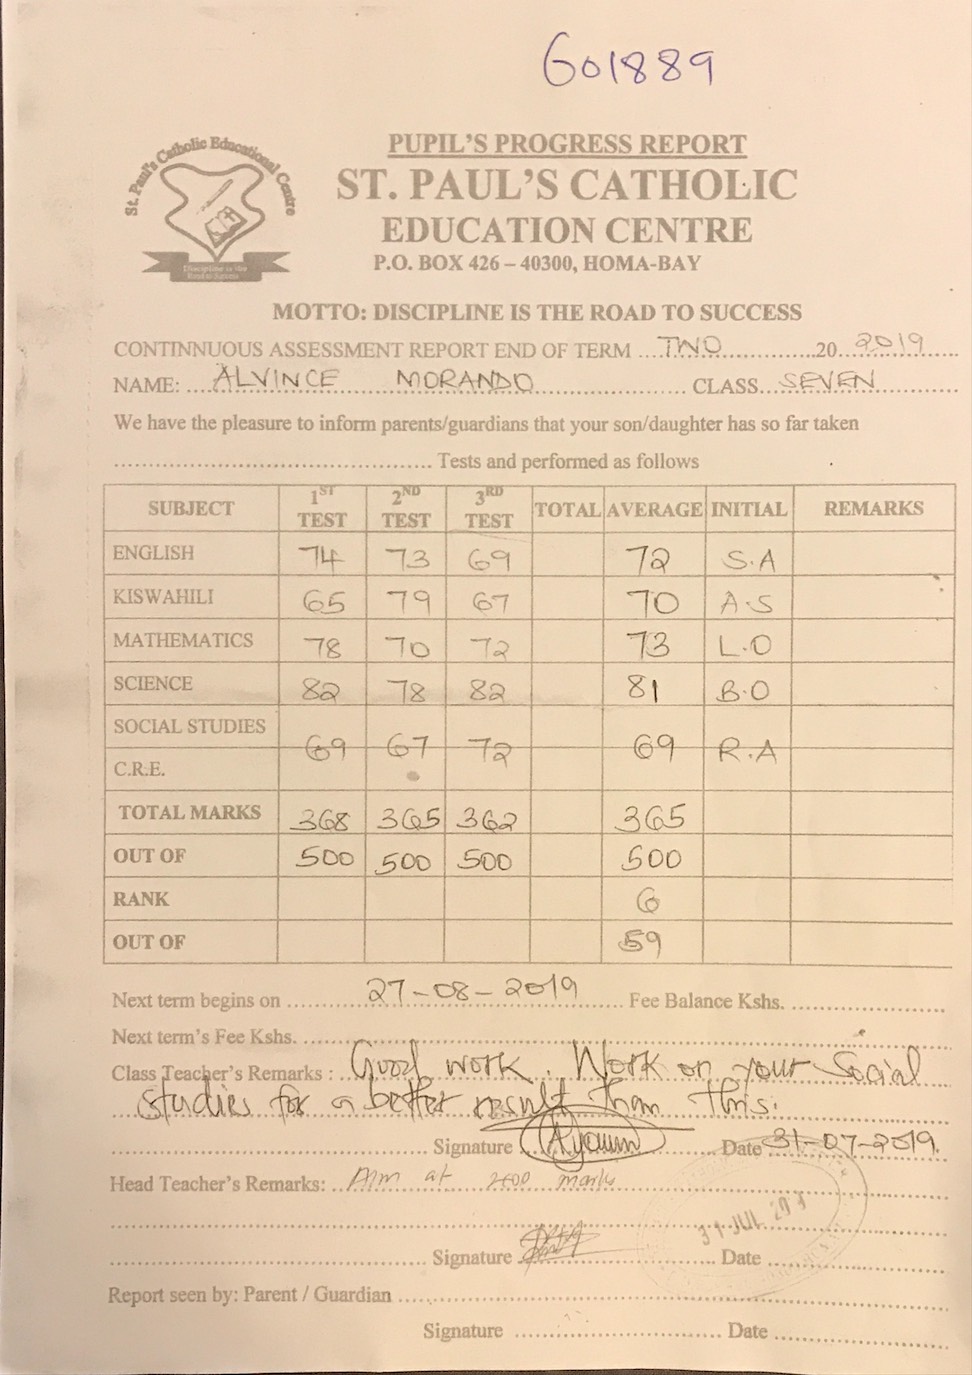 G01889
St. Paul's Catholic Educational Centre
Discipline is the
Road to Success
PUPIL'S PROGRESS REPORT
ST. PAUL'S CATHOLIC
EDUCATION CENTRE
P.O. BOX 426 – 40300, HOMA-BAY
MOTTO: DISCIPLINE IS THE ROAD TO SUCCESS
CONTINNUOUS ASSESSMENT REPORT END OF TERM ...TWO............20...2019......
NAME: ....ALVINCE MORANDO........................ CLASS...SEVEN............
We have the pleasure to inform parents/guardians that your son/daughter has so far taken
.................................................. Tests and performed as follows
SUBJECT 1ST TEST 2ND TEST 3RD TEST TOTAL AVERAGE INITIAL REMARKS
ENGLISH 74 73 69 72 S.A
KISWAHILI 65 79 67 70 A.S
MATHEMATICS 78 70 72 73 L.O
SCIENCE 82 78 82 81 B.O
SOCIAL STUDIES
69 67 72 69 R.A
C.R.E.
TOTAL MARKS 368 365 362 365
OUT OF 500 500 500 500
RANK 6
OUT OF 59
Next term begins on ............27-08-2019........ Fee Balance Kshs. ..........................
Next term's Fee Kshs. ..........................................................................
Class Teacher's Remarks : ..Good work. Work on your Social
studies for a better result than this.
.................................................. Signature .................... Date 31-07-2019.
Head Teacher's Remarks: ...Aim at 400 marks
31 JUL
.................................................. Signature .................... Date ....................
Report seen by: Parent / Guardian ..........................................................
Signature .................................. Date ..........................